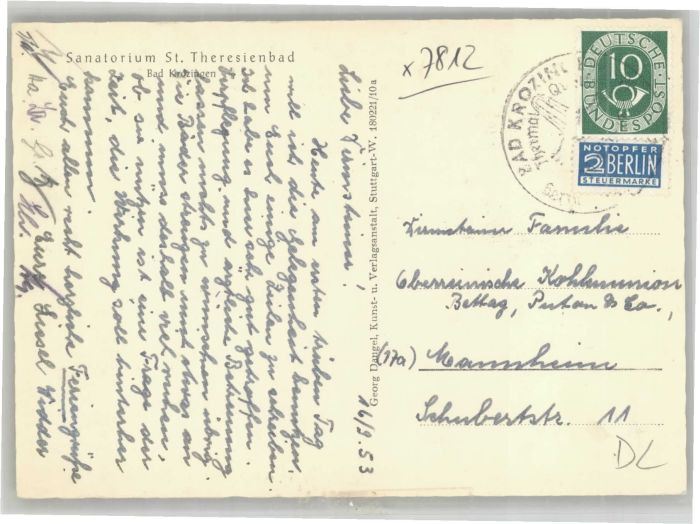 Sanatorium St. Theresienbad
Bad Krozingen
x 7812
BAD KROZING
Thermal
DEUTSCHE
BUNDESPOST
10
NOTOPFER
2 BERLIN
STEUERMARKE
16/9.53
Liebe
Heute am ersten trüben Tag
will ich die Gelegenheit benutzen
von Euch einige Zeilen zu schreiben
Ich habe es hier sehr gut getroffen.
Verpflegung und ärztliche Betreuung
lassen nichts zu wünschen übrig
die Bäder strengen mich etwas an
und muss deshalb viel ruhen,
ob sie nützen ist eine Frage der
Zeit, die Wirkung soll hinterher
kommen.
Euch allen recht herzliche Feriengrüße
Eure Liesel
Georg Dangel, Kunst- u. Verlagsanstalt, Stuttgart-W. 180221/10 a
Familie
Oberrheinische Kohlenunion
Bettag, Puton & Co.,
(17a) Mannheim
Schubertstr. 11
DL